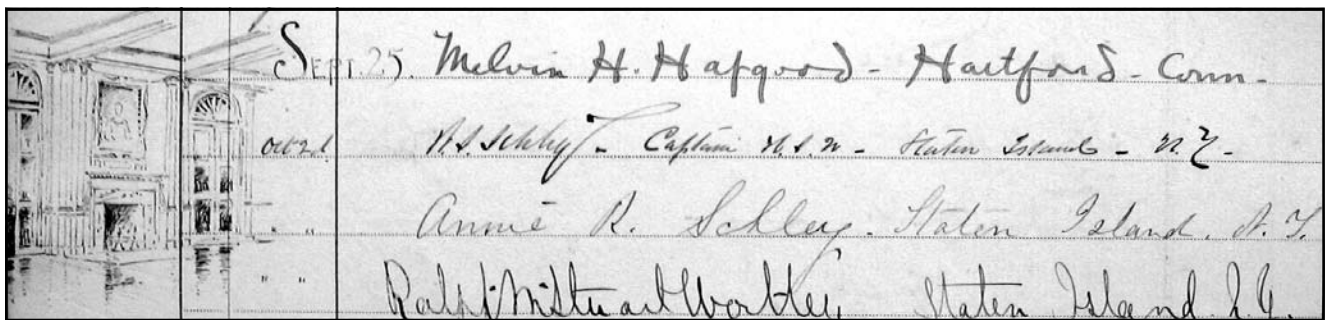 Sept. 25. Melvin H. Hapgood - Hartford - Conn -
Oct 2d W.S. Schley - Captain U.S.N - Staten Island - N.Y -
" " Annie R. Schley. Staten Island. N.Y.
" " Ralph M Stuart Wortley, Staten Island N.Y.